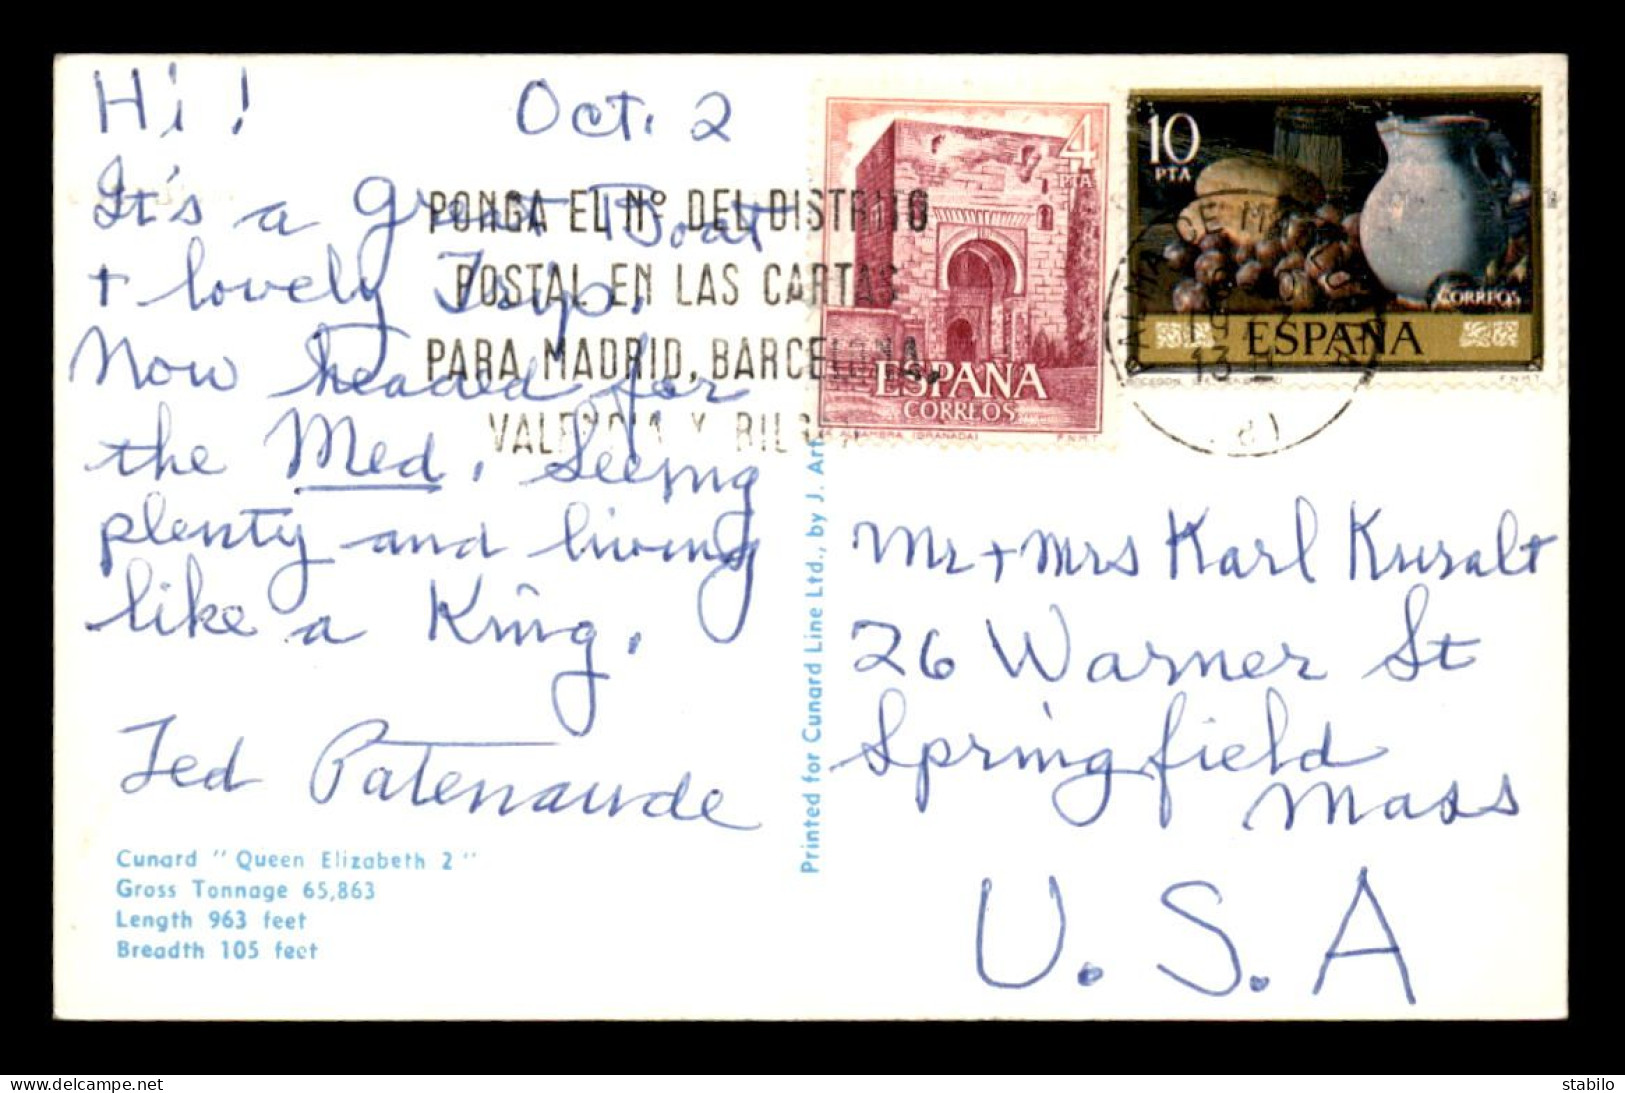 Hi!
Oct. 2
It's a great Boat
+ lovely Trip.
Now headed for
the Med. Seeing
plenty and living
like a King.
Ted Patenaude
Cunard "Queen Elizabeth 2"
Gross Tonnage 65,863
Length 963 feet
Breadth 105 feet
Printed for Cunard Line Ltd., by J. Art
PONGA EL Nº DEL DISTRITO
POSTAL EN LAS CARTAS
PARA MADRID, BARCELONA,
VALENCIA Y BILBAO
4
PTA
ESPAÑA
CORREOS
ALHAMBRA (GRANADA)
F.N.M.T.
10
PTA
CORREOS
ESPAÑA
F.N.M.T.
Mr + Mrs Karl Kuralt
26 Warner St
Springfield
Mass
U.S.A
stabilo